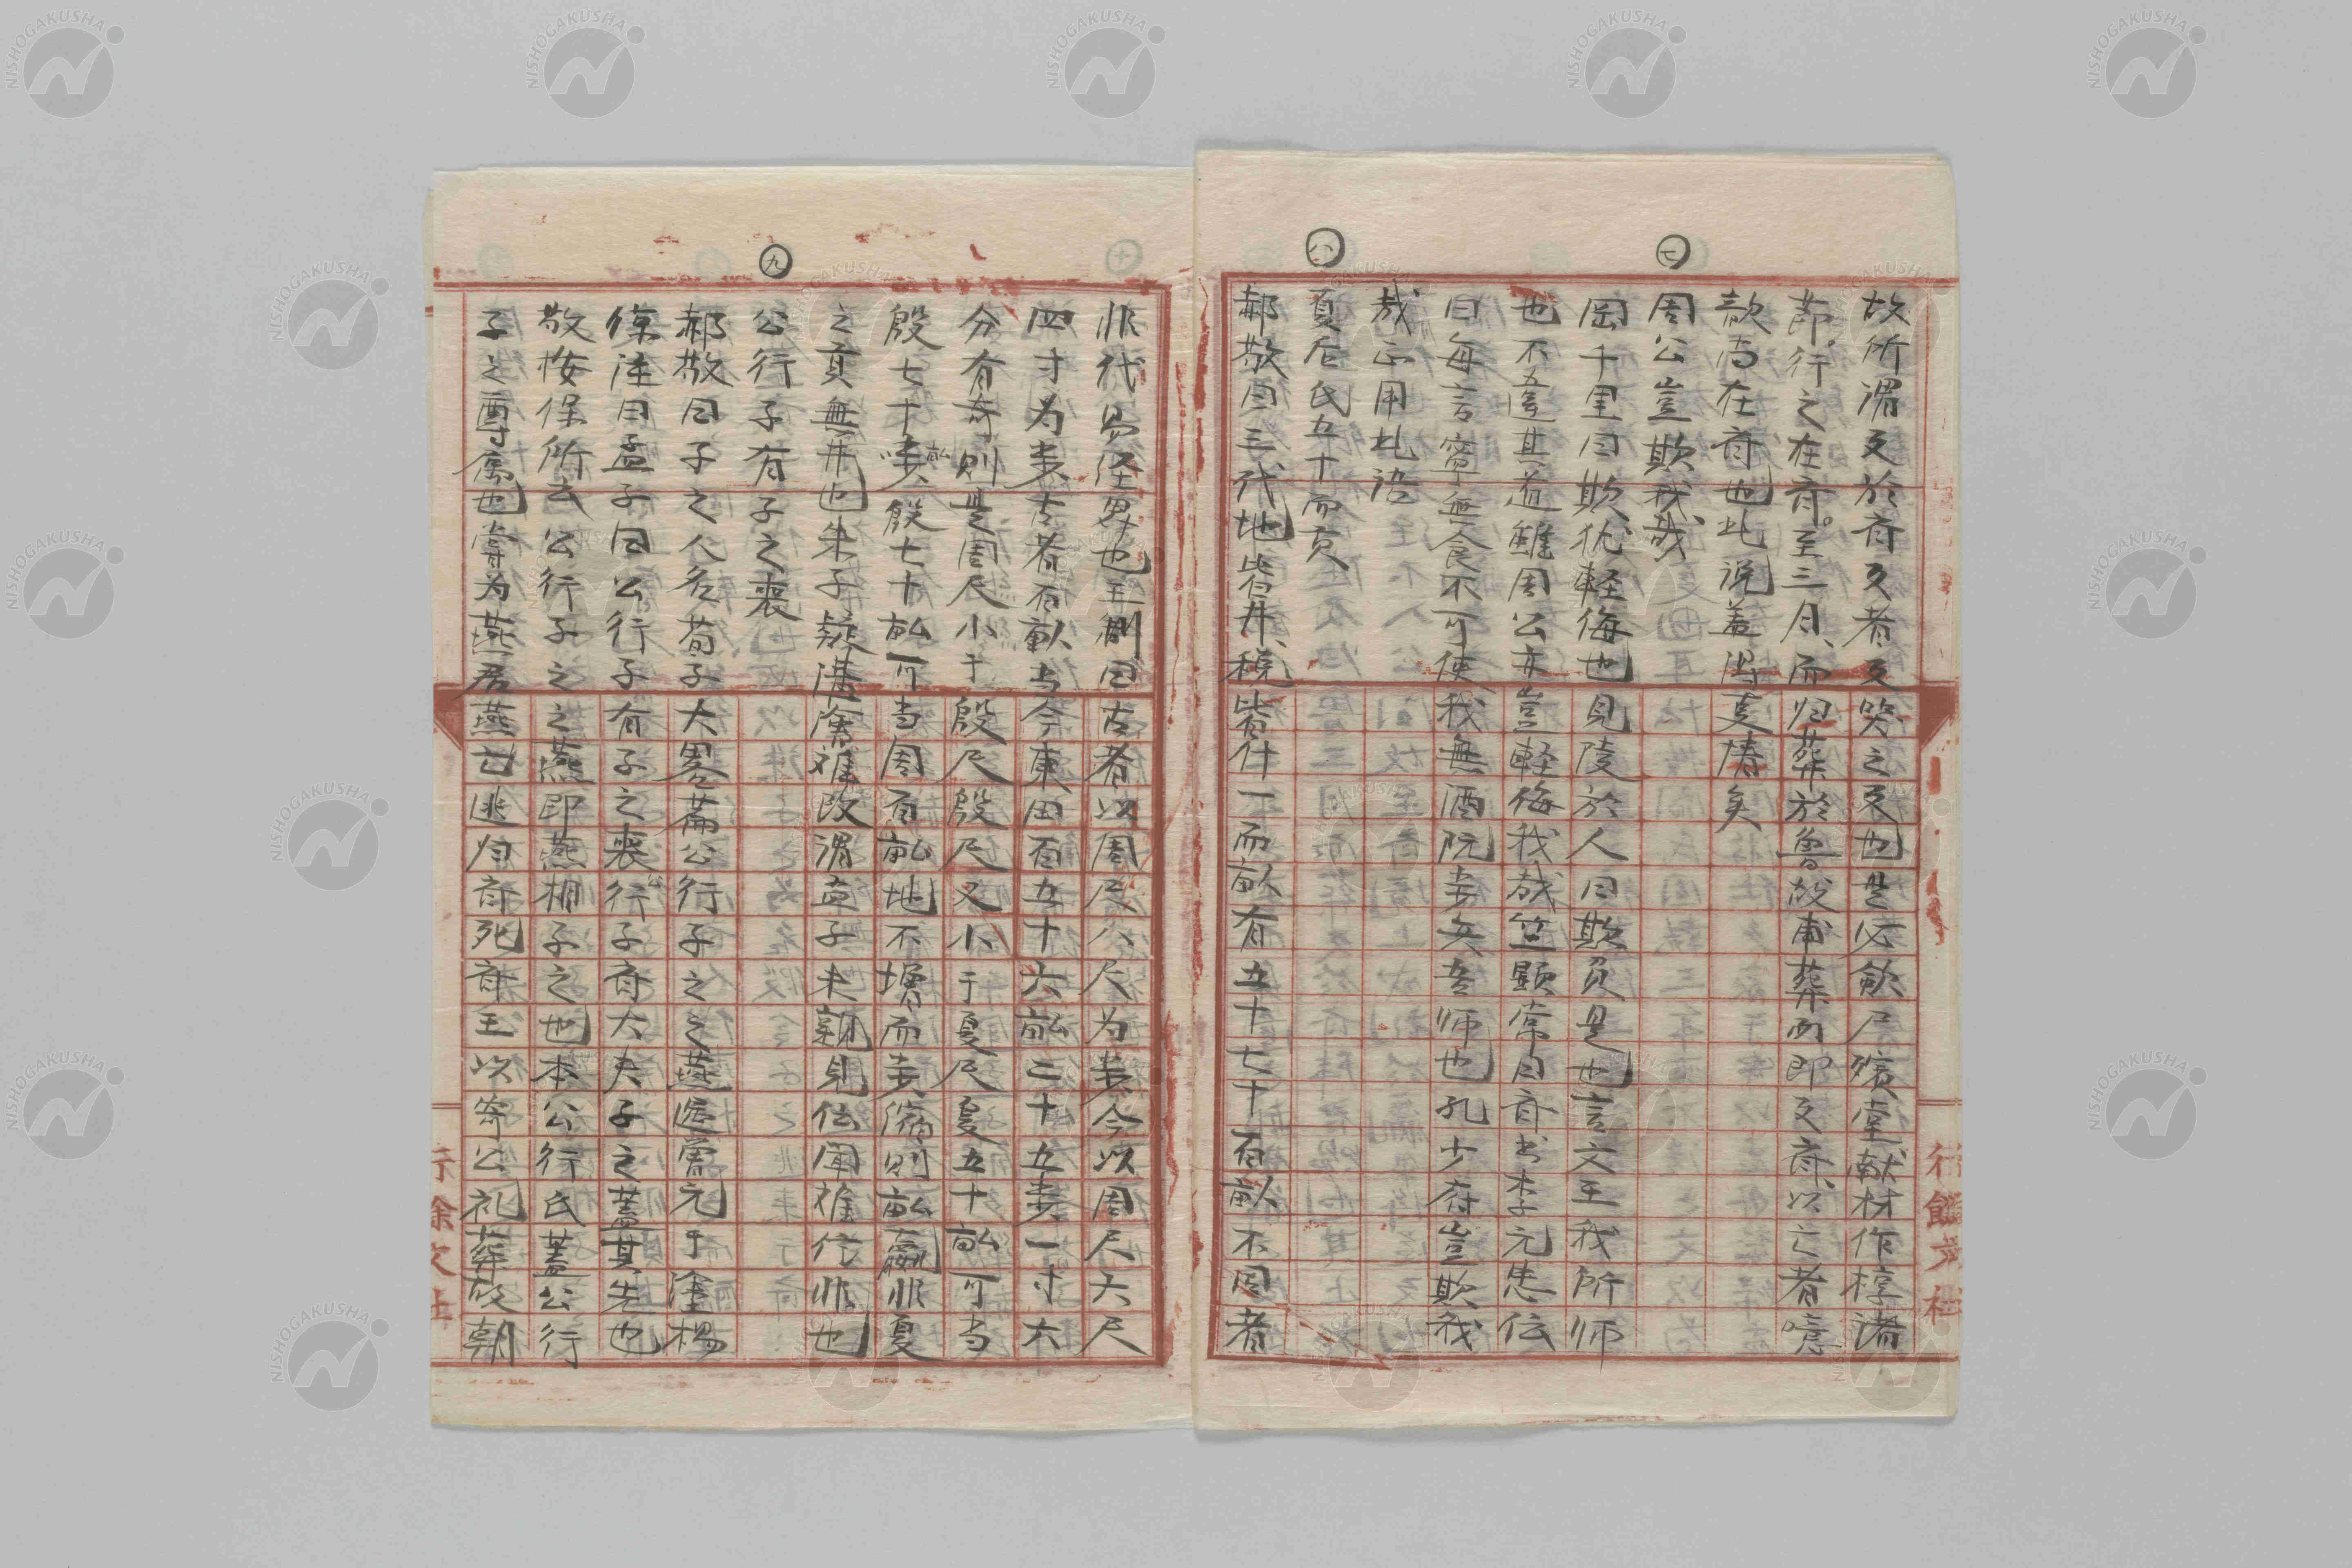 ㊆
㊇
故所謂反於齊久者反哭之反也是必斂尸殯堂献材作椁諸
節行之在齊至三月、而归葬於魯故甫葬而即反齊、以亡者噫
歆尚在齊也此説盖得真情矣
周公豈欺我哉
岡千里曰欺犹軽侮也見陵於人曰欺負是也言文王我所师
也不善其道雖周公亦豈軽侮我哉笠顕常曰斉书李元忠伝
曰毎言寧無食不可使我無酒阮步兵吾师也孔少府豈欺我
哉正用此語
夏后氏五十而貢
郝敬曰三代地皆井、税皆什一而畝有五十七十百畝不同者
㊈
非代易経界也王制曰古者以周尺八尺为步今以周尺六尺
四寸为步古者百畝当今東田百五十六畝二十五步一寸六
分有奇則是周尺小于殷尺殷尺又小于夏尺夏五十畝可当
殷七十畝殷七十畝可当周百畝地不增而步縮則畝贏非夏
之貢無井也朱子疑溝澮难改谓孟子未親見伝聞难信非也
公行子有子之喪
郝敬曰子之人名荀子大畧篇公行子之之燕遇曽元于塗楊
倞注曰孟子曰公行子有子之喪公行子斉大夫子之蓋其先也
敬按倞所云公行子之之燕即燕相子之也本公行氏蓋公行
子之尊属也嘗为燕君燕亡逃归斉死斉王以寄公礼葬故朝
行餘文社